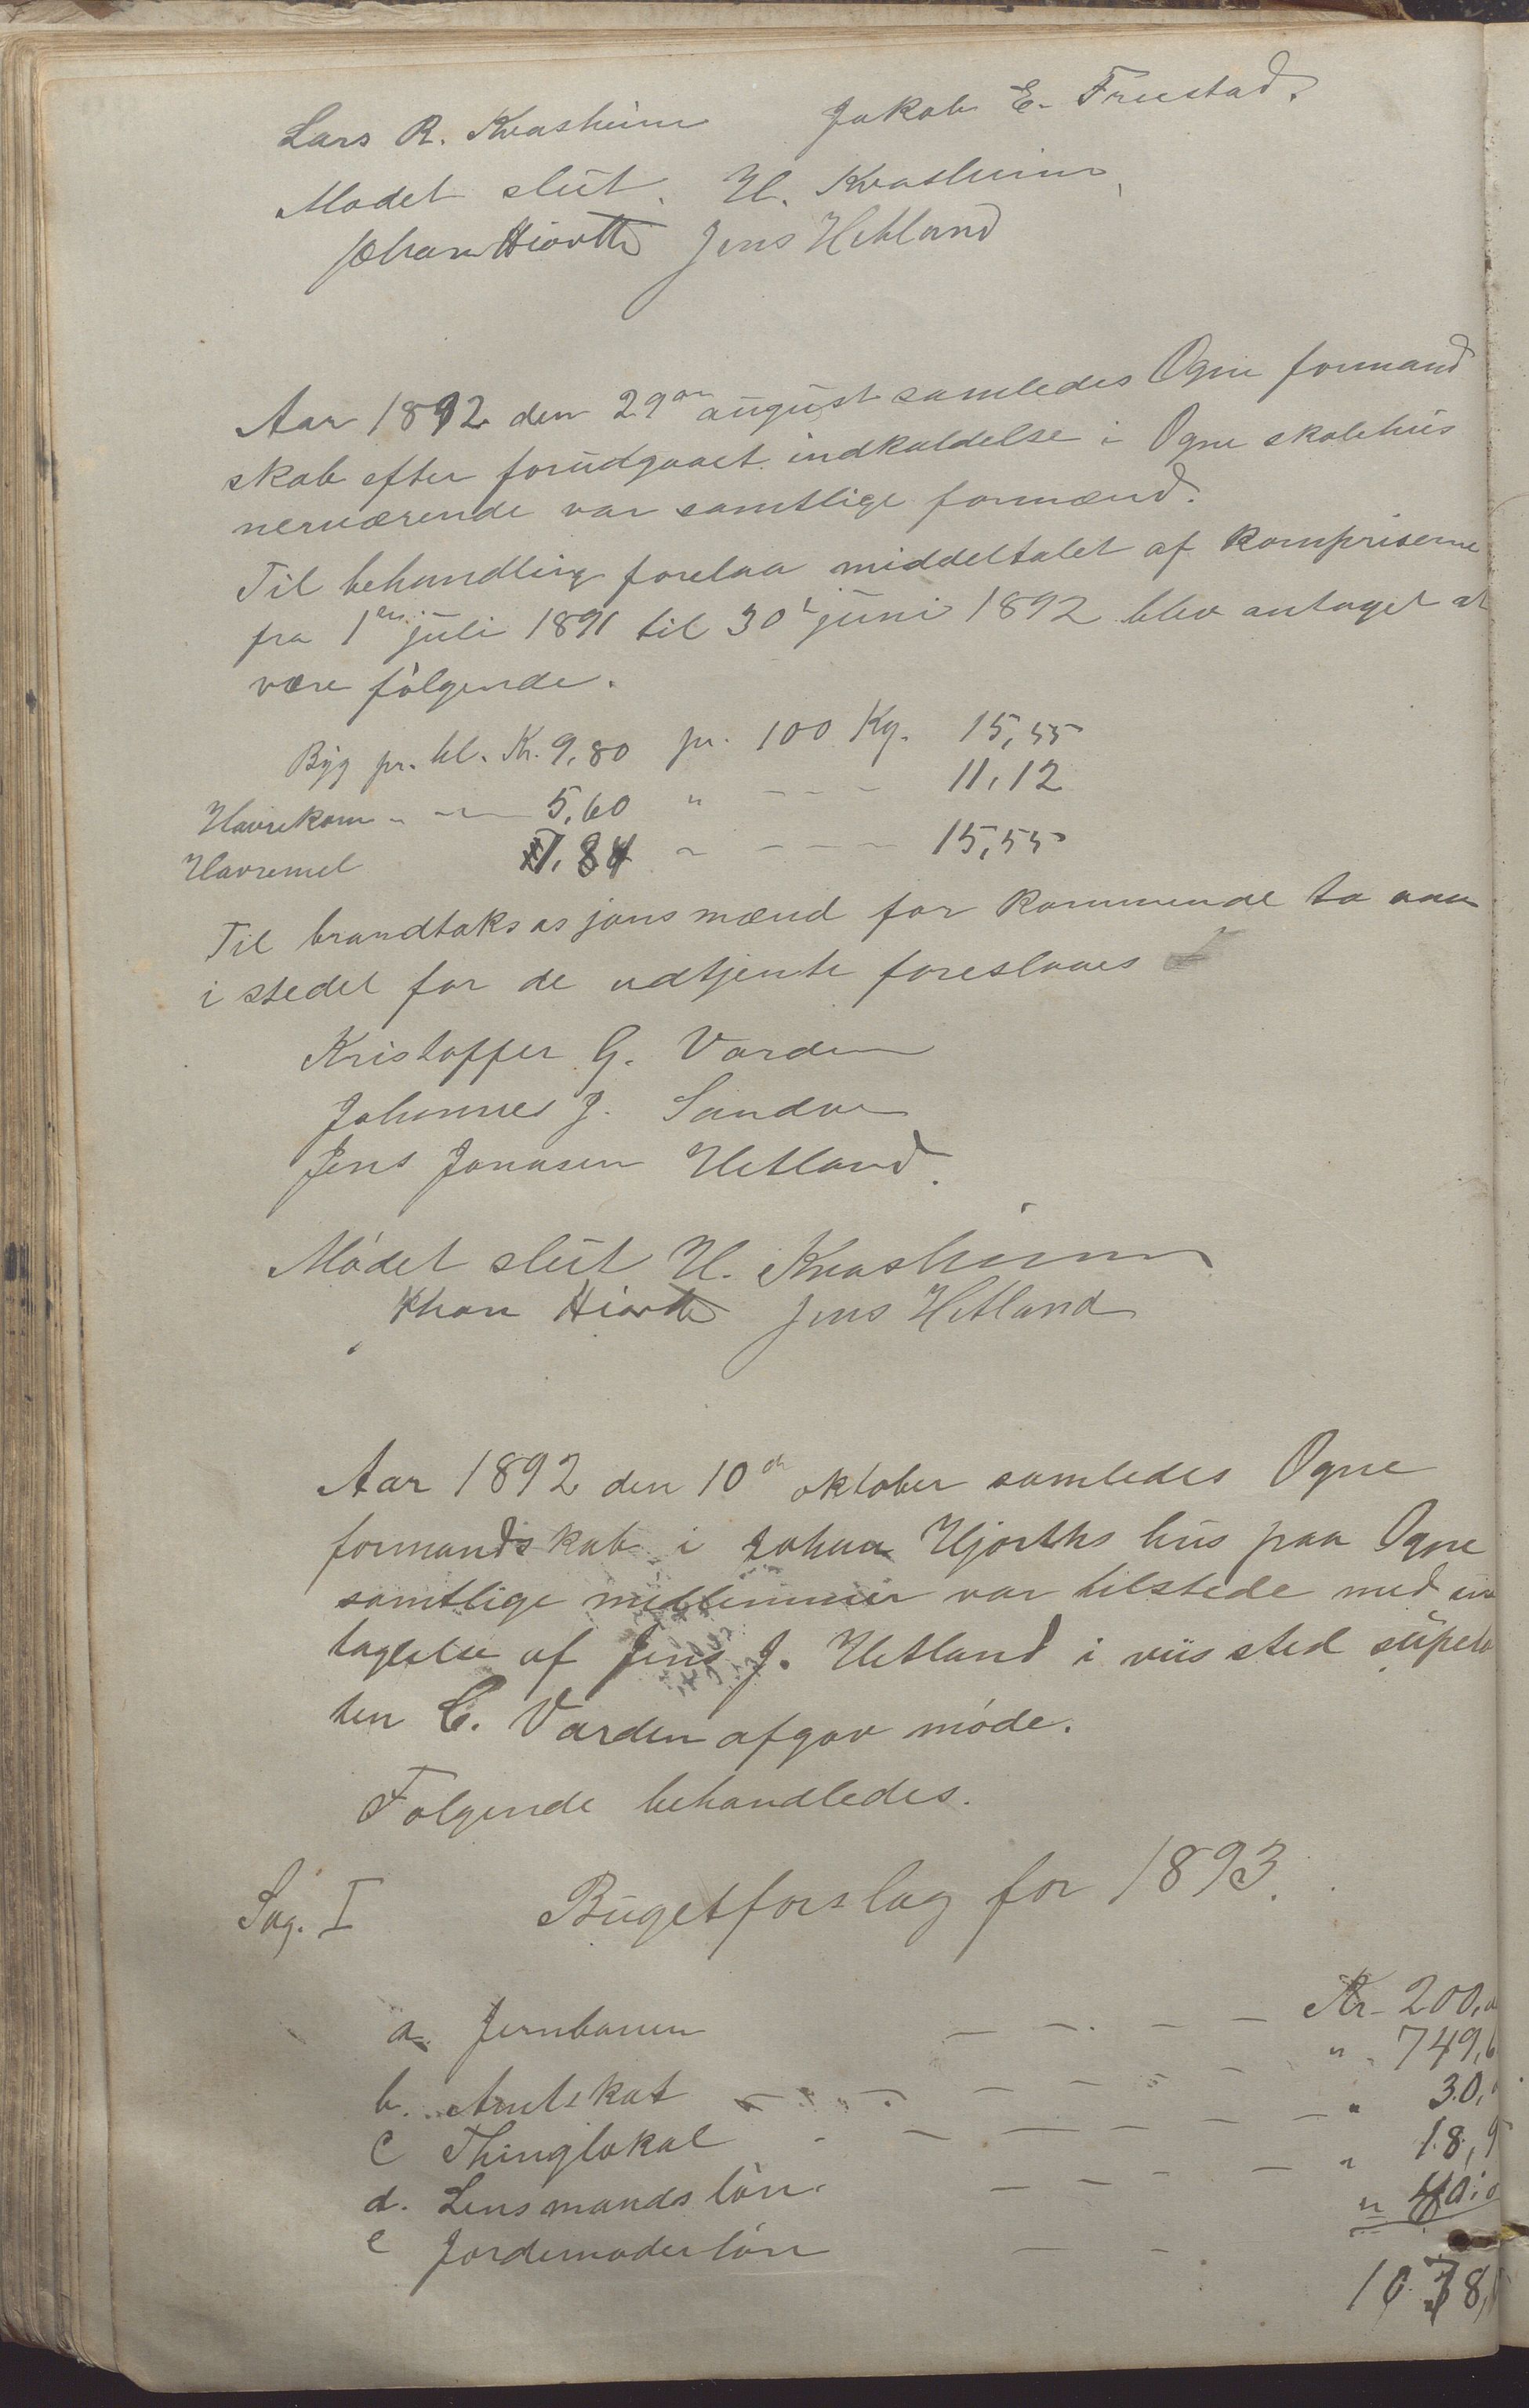 Lars R. Kvasheim Jakob E. Fruestad.
Mødet slut. H. Kvasheim,
Johan Hiorth Jens Hetland
Aar 1892 den 29de august samledes Ogne formand
skab efter forudgaaet indkaldelse i Ogne skolehus
nerværende var samtlige formænd.
Til behandling forelaa middeltalet af kornpriserne
fra 1ste juli 1891 til 30te juni 1892 blev antaget at
være følgende.
Byg pr. hl. Kr. 9,80 pr. 100 Kg. 15,55
Havrekorn " — 5,60 " - - - 11,12
Havremel 7.84 " - - - 15,55
Til brandtaksasjonsmænd for kommende to aar
i stedet for de udtjente foreslaaes
Kristoffer G. Varden
Johannes J. Sandve
Jens Jonasen Hetland.
Mødet slut H. Kvasheim
Johan Hiorth Jens Hetland
Aar 1892 den 10de oktober samledes Ogne
formandskab i Johan Hjorths hus paa Ogne
samtlige medlemmer var tilstede med und
tagelse af Jens J. Hetland i viis sted suplean
ten C. Varden afgav møde.
Følgende behandledes.
Sag. I Bugetforslag for 1893.
a. Jernbanen — — — — Kr. 200,
b. Amtskat — — — — " 749,6
c Thinglokal — — — — " 30,
d. Lensmandsløn. — — — " 18,9
e Jordemoderløn — — " 40,0
1038,